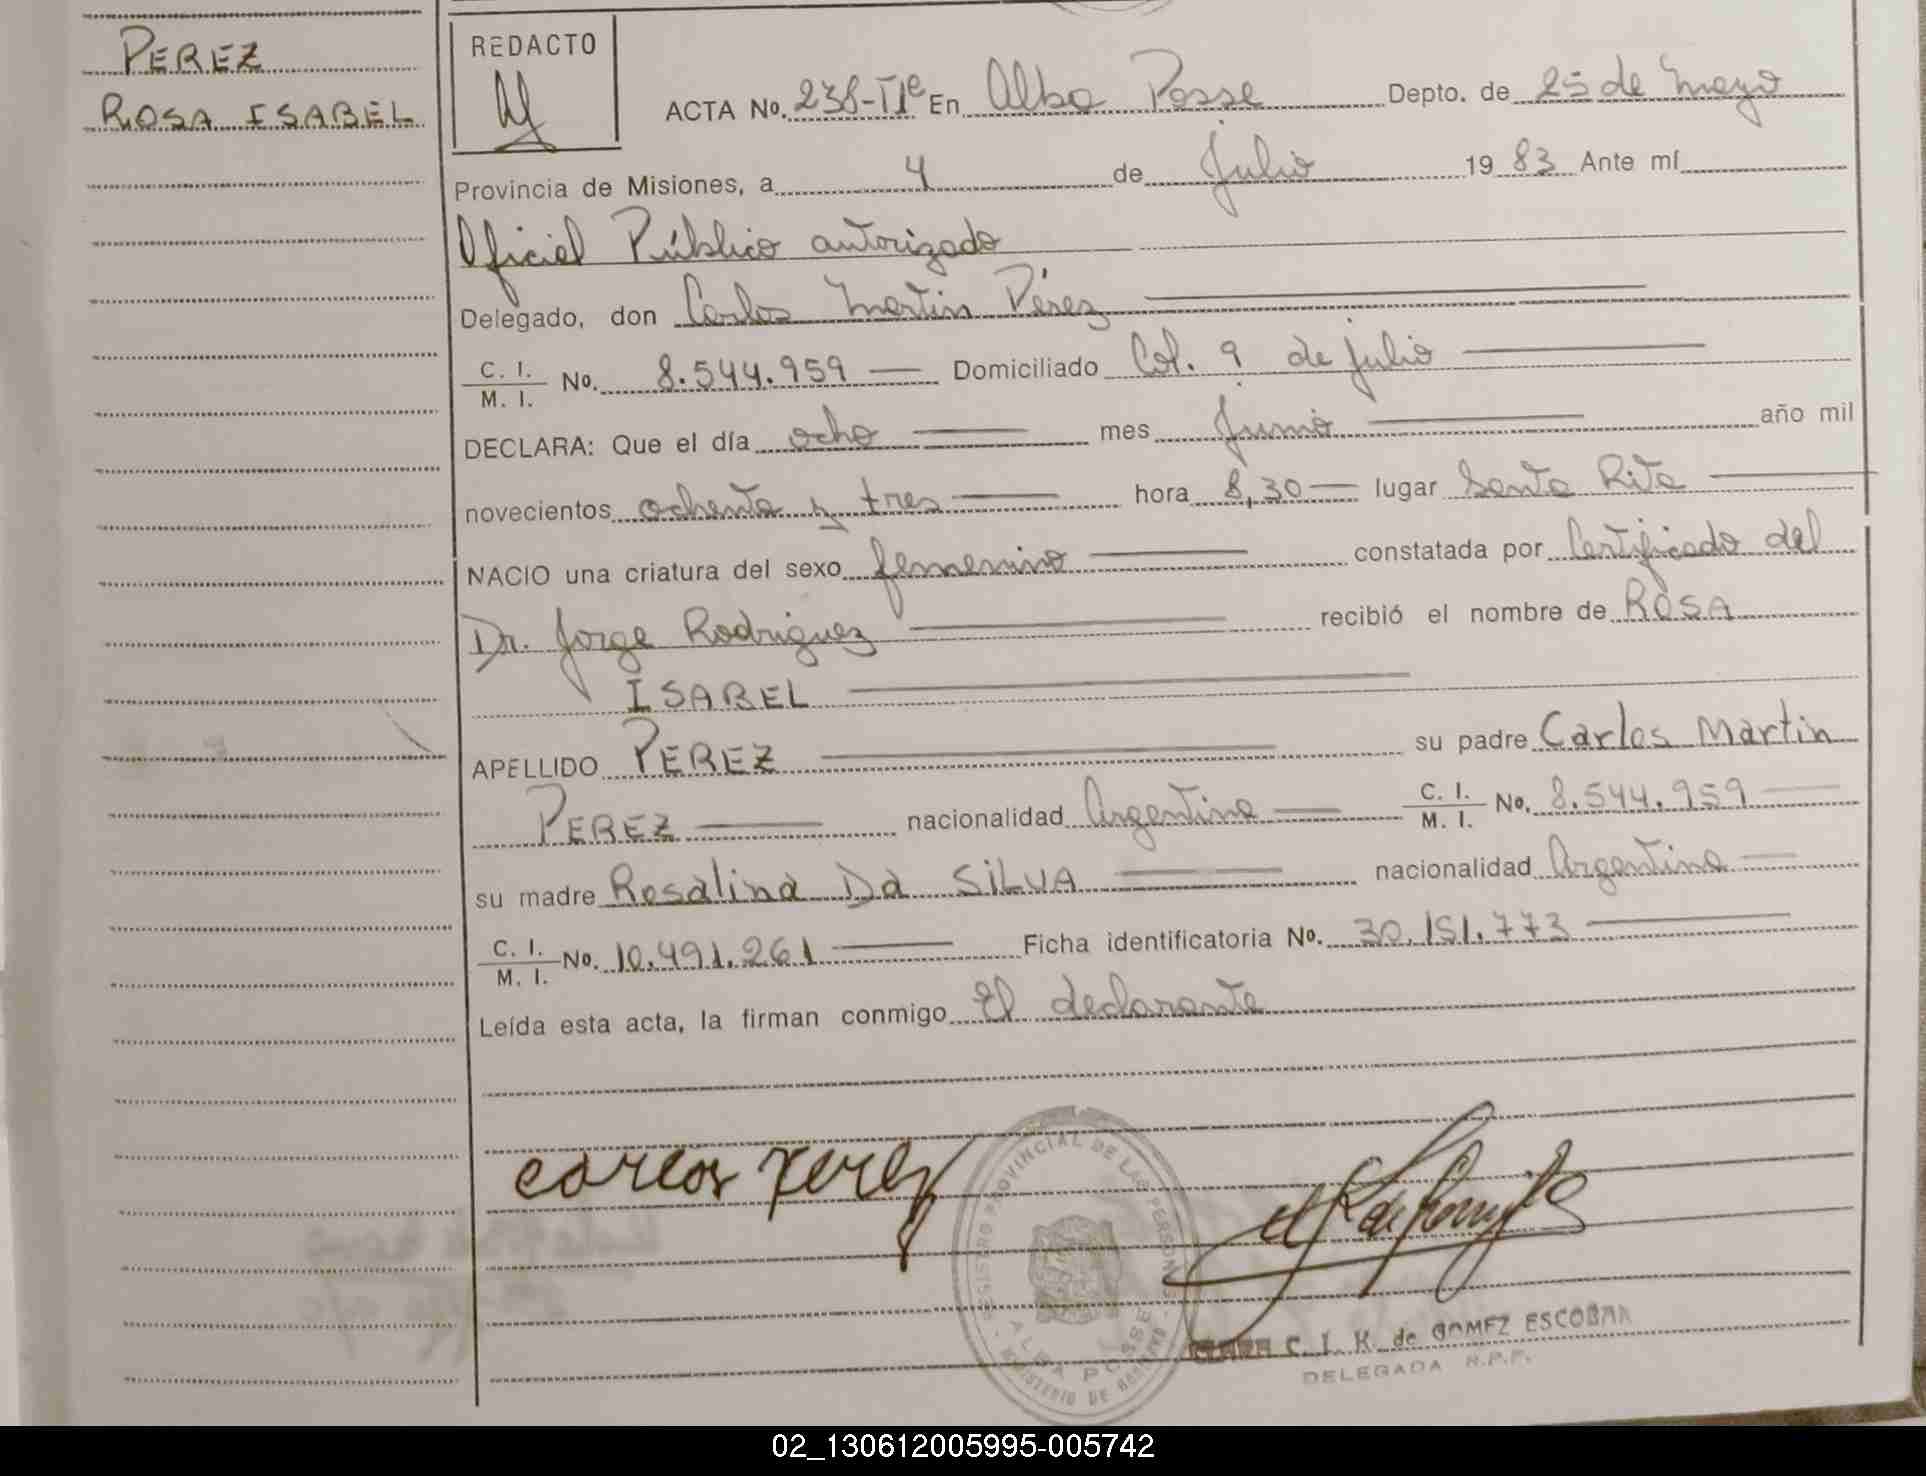 PEREZ
ROSA ISABEL
REDACTO
ACTA No. 238-T1e En Alba Posse Depto. de 25 de Mayo
Provincia de Misiones, a 4 de Julio 19 83 Ante mí
Oficial Público autorizado
Delegado, don Carlos Martin Pérez
C. I.
M. I. No. 8.544.959 Domiciliado Col. 9 de julio
DECLARA: Que el día ocho mes Junio año mil
novecientos ochenta y tres hora 8,30 lugar Santa Rita
NACIO una criatura del sexo femenino constatada por Certificado del
Dr. Jorge Rodriguez recibió el nombre de ROSA
ISABEL
APELLIDO PEREZ su padre Carlos Martin
PEREZ nacionalidad Argentina C. I.
M. I. No. 8.544.959
su madre Rosalina Da SiLVA nacionalidad Argentina
C. I.
M. I. No. 10.491.261 Ficha identificatoria No. 30.151.773
Leída esta acta, la firman conmigo El declarante
carlos Perez
REGISTRO PROVINCIAL DE LAS PERSONAS
ALBA POSSE
MINISTERIO DE GOBIERNO
C. I. K. de GOMEZ ESCOBAR
DELEGADA R.P.P.
02_130612005995-005742